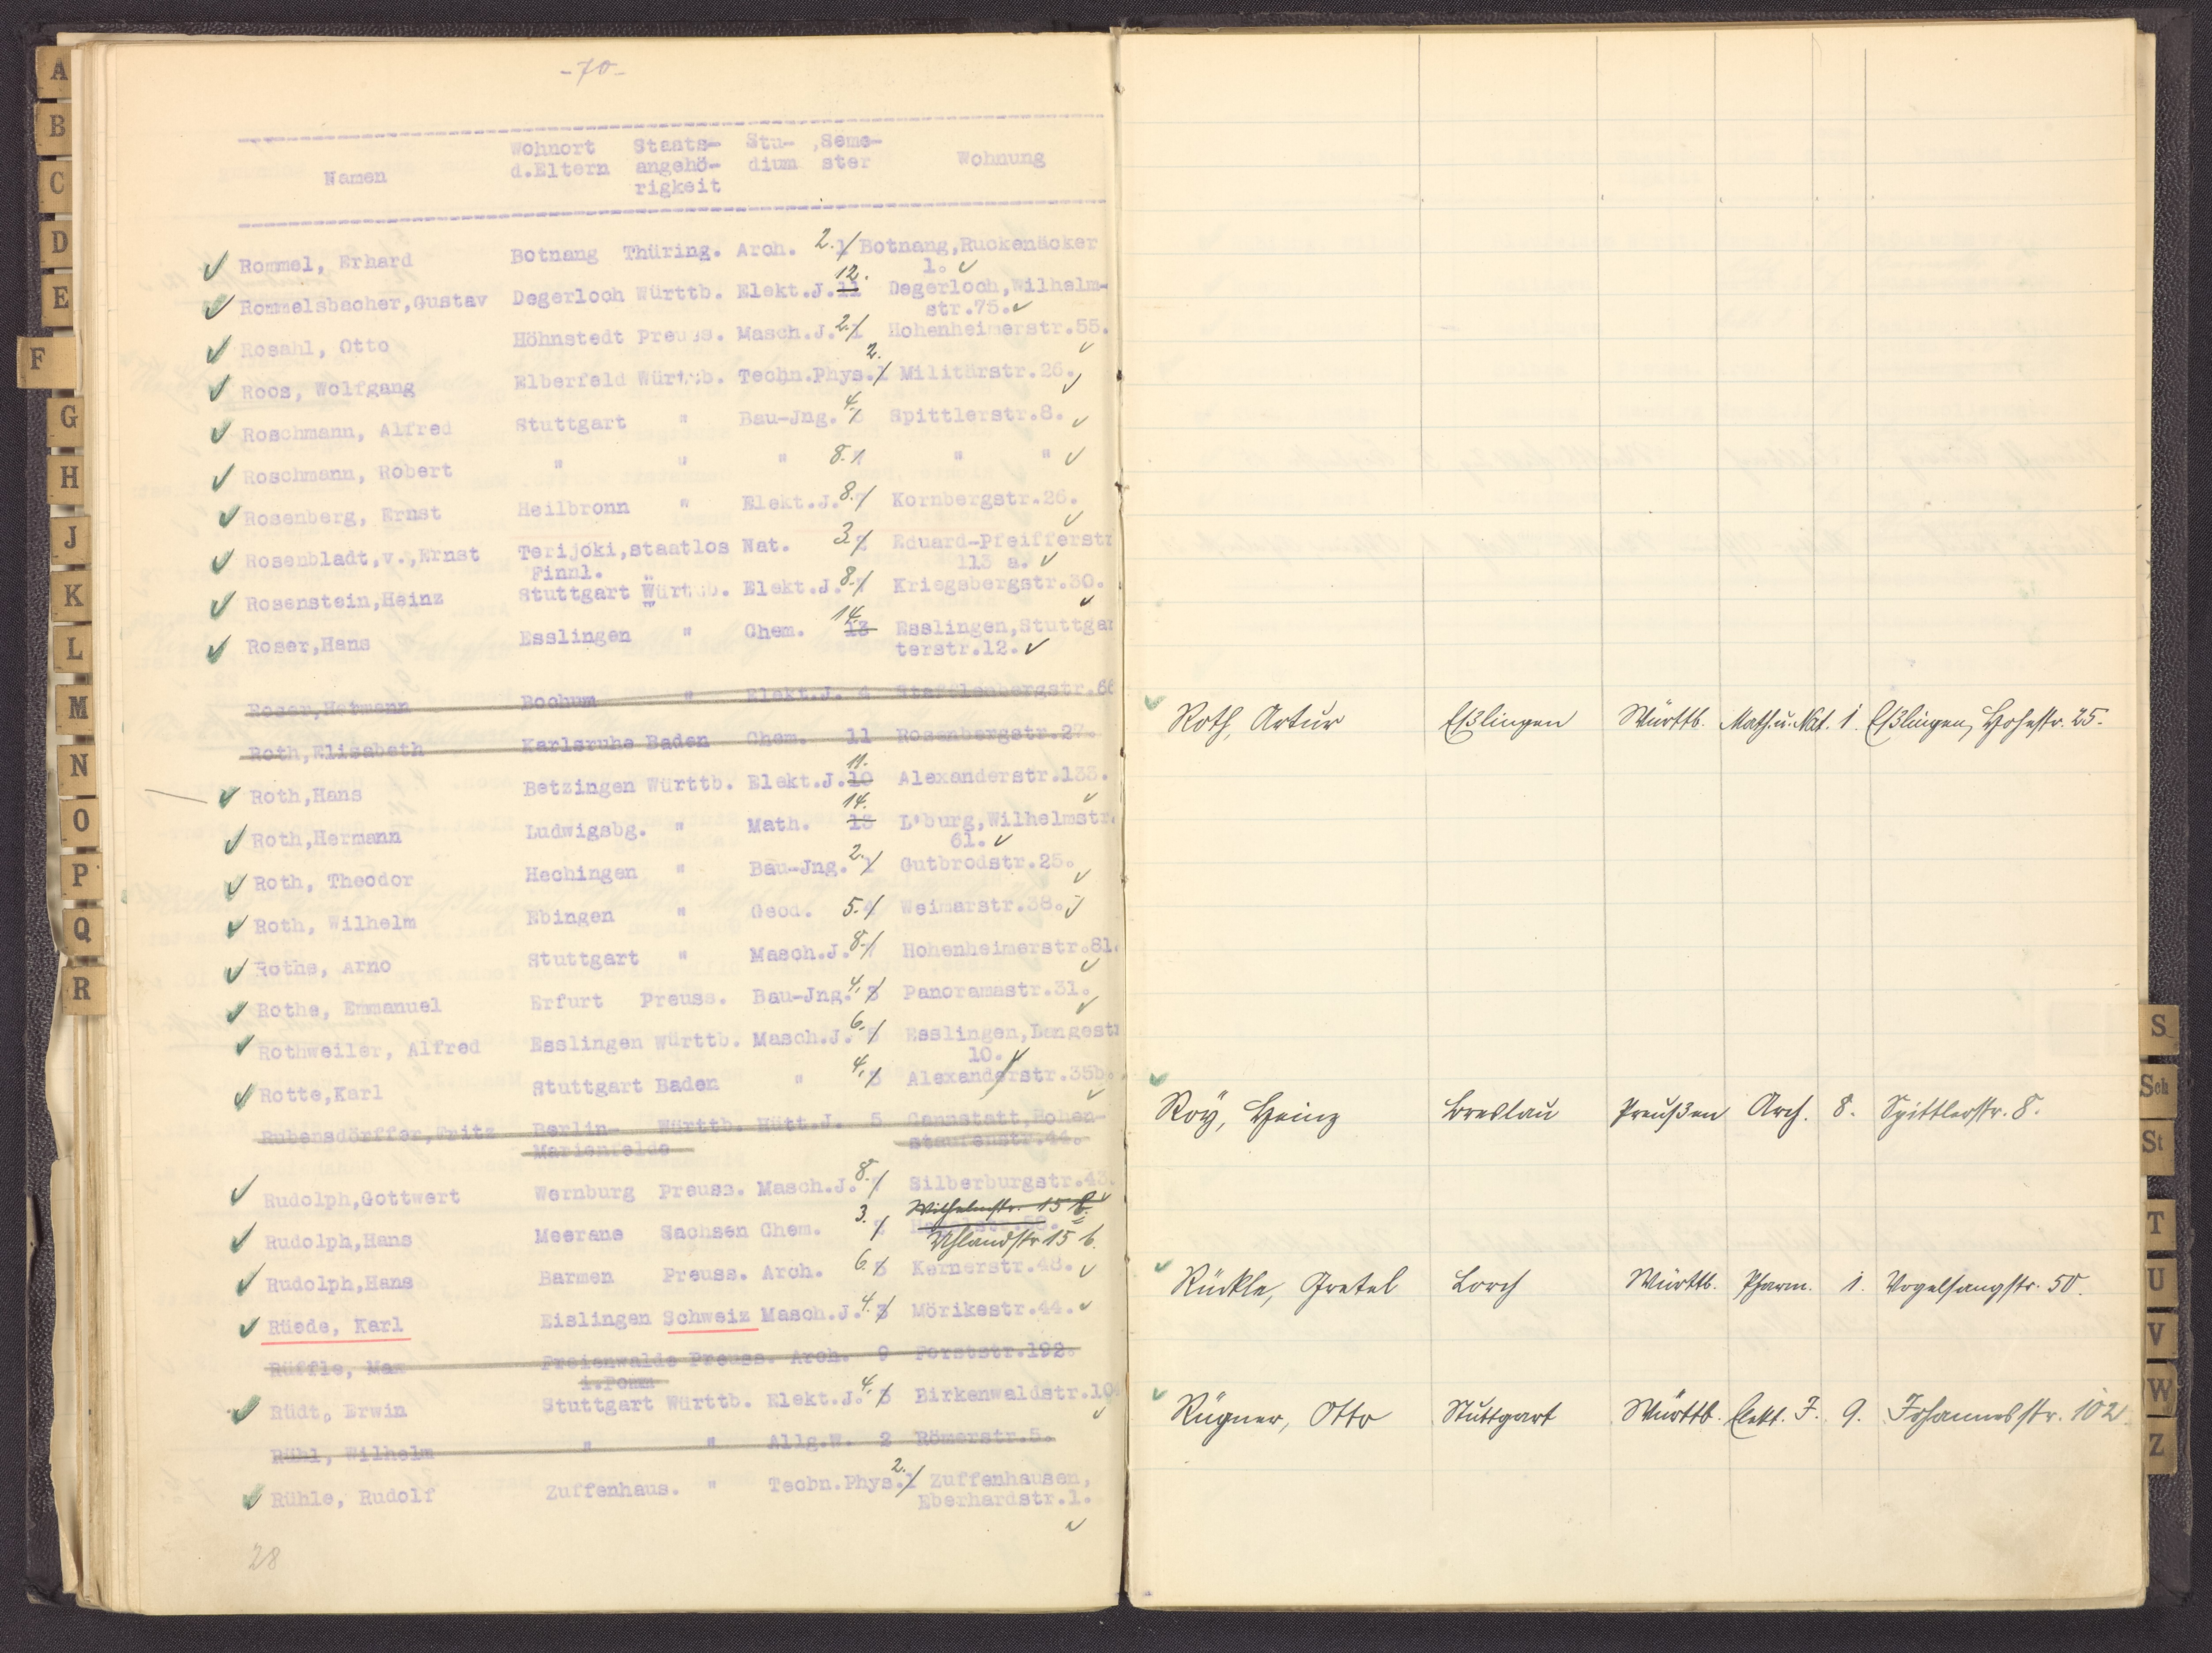 -70-
Namen Wohnort d.Eltern Staats-angehö-rigkeit Stu-dium Seme-ster Wohnung
Rommel, Erhard Botnang Thüring. Arch. 2. 1 Botnang,Ruckenäcker
1.
Rommelsbacher,Gustav Degerloch Württb. Elekt.J. 12. 11 Degerloch,Wilhelm-
str.75.
Rosahl, Otto Höhnstedt Preuss. Masch.J. 2. 1 Hohenheimerstr.55.
Roos, Wolfgang Elberfeld Württb. Techn.Phys. 2. 1 Militärstr.26.
Roschmann, Alfred Stuttgart " Bau-Jng. 4. 3 Spittlerstr.8.
Roschmann, Robert " " " 8. " "
Rosenberg, Ernst Heilbronn " Elekt.J. 8. Kornbergstr.26.
Rosenbladt,v.,Ernst Terijoki,staatlos Nat. 3. 2 Eduard-Pfeifferstr
Finnl. 113 a.
Rosenstein,Heinz Stuttgart Württb. Elekt.J. 8. Kriegsbergstr.30.
Roser,Hans Esslingen " Chem. 14. 13 Esslingen,Stuttgar
terstr.12.
Roser,Hermann Bochum " Elekt.J. 4 Staffelenbergstr.66
Roth,Elisabeth Karlsruhe Baden Chem. 11 Rosenbergstr.27.
Roth,Hans Betzingen Württb. Elekt.J. 11. 10 Alexanderstr.133.
Roth,Hermann Ludwigsbg. " Math. 14. 13 L'burg,Wilhelmstr.
61.
Roth, Theodor Hechingen " Bau-Jng. 2. 1 Gutbrodstr.25.
Roth, Wilhelm Ebingen " Geod. 5. 4 Weimarstr.38.
Rothe, Arno Stuttgart " Masch.J. 8. Hohenheimerstr.81.
Rothe, Emmanuel Erfurt Preuss. Bau-Jng. 4. 3 Panoramastr.31.
Rothweiler, Alfred Esslingen Württb. Masch.J. 6. 5 Esslingen,Langestr
10.
Rotte,Karl Stuttgart Baden " 4. 3 Alexanderstr.35b.
Rubensdörffer,Fritz Berlin- Württb. Hütt.J. 5 Cannstatt,Hohen-
Marienfelde staufenstr.44.
Rudolph,Gottwert Wernburg Preuss. Masch.J. 8. Silberburgstr.43.
Wilhelmstr. 15
Rudolph,Hans Meerane Sachsen Chem. 3. 2
Uhlandstr 15 b.
Rudolph,Hans Barmen Preuss. Arch. 6. 5 Kernerstr.48.
Rüede, Karl Eislingen Schweiz Masch.J. 4. 3 Mörikestr.44.
Rüffle, Max Freienwalde Preuss. Arch. 9 Forststr.192.
i.Pomm
Rüdt, Erwin Stuttgart Württb. Elekt.J. 4. 3 Birkenwaldstr.10
Rühl, Wilhelm " " Allg.W. 2 Römerstr.5.
Rühle, Rudolf Zuffenhaus. " Techn.Phys. 2. 1 Zuffenhausen,
Eberhardstr.1.
28
Roth, Artur Eßlingen Württb. Math.u.Nat. 1. Eßlingen, Hohestr. 25.
Roÿ, Heinz Breslau Preußen Arch. 8. Spittlerstr. 8.
Rückle, Gretel Lorch Württb. Pharm. 1. Vogelsangstr. 50.
Rügner, Otto Stuttgart Württb. Elekt. J. 9. Johannesstr. 102.
A
B
C
D
E
F
G
H
J
K
L
M
N
O
P
Q
R
S
Sch
St
T
U
V
W
Z